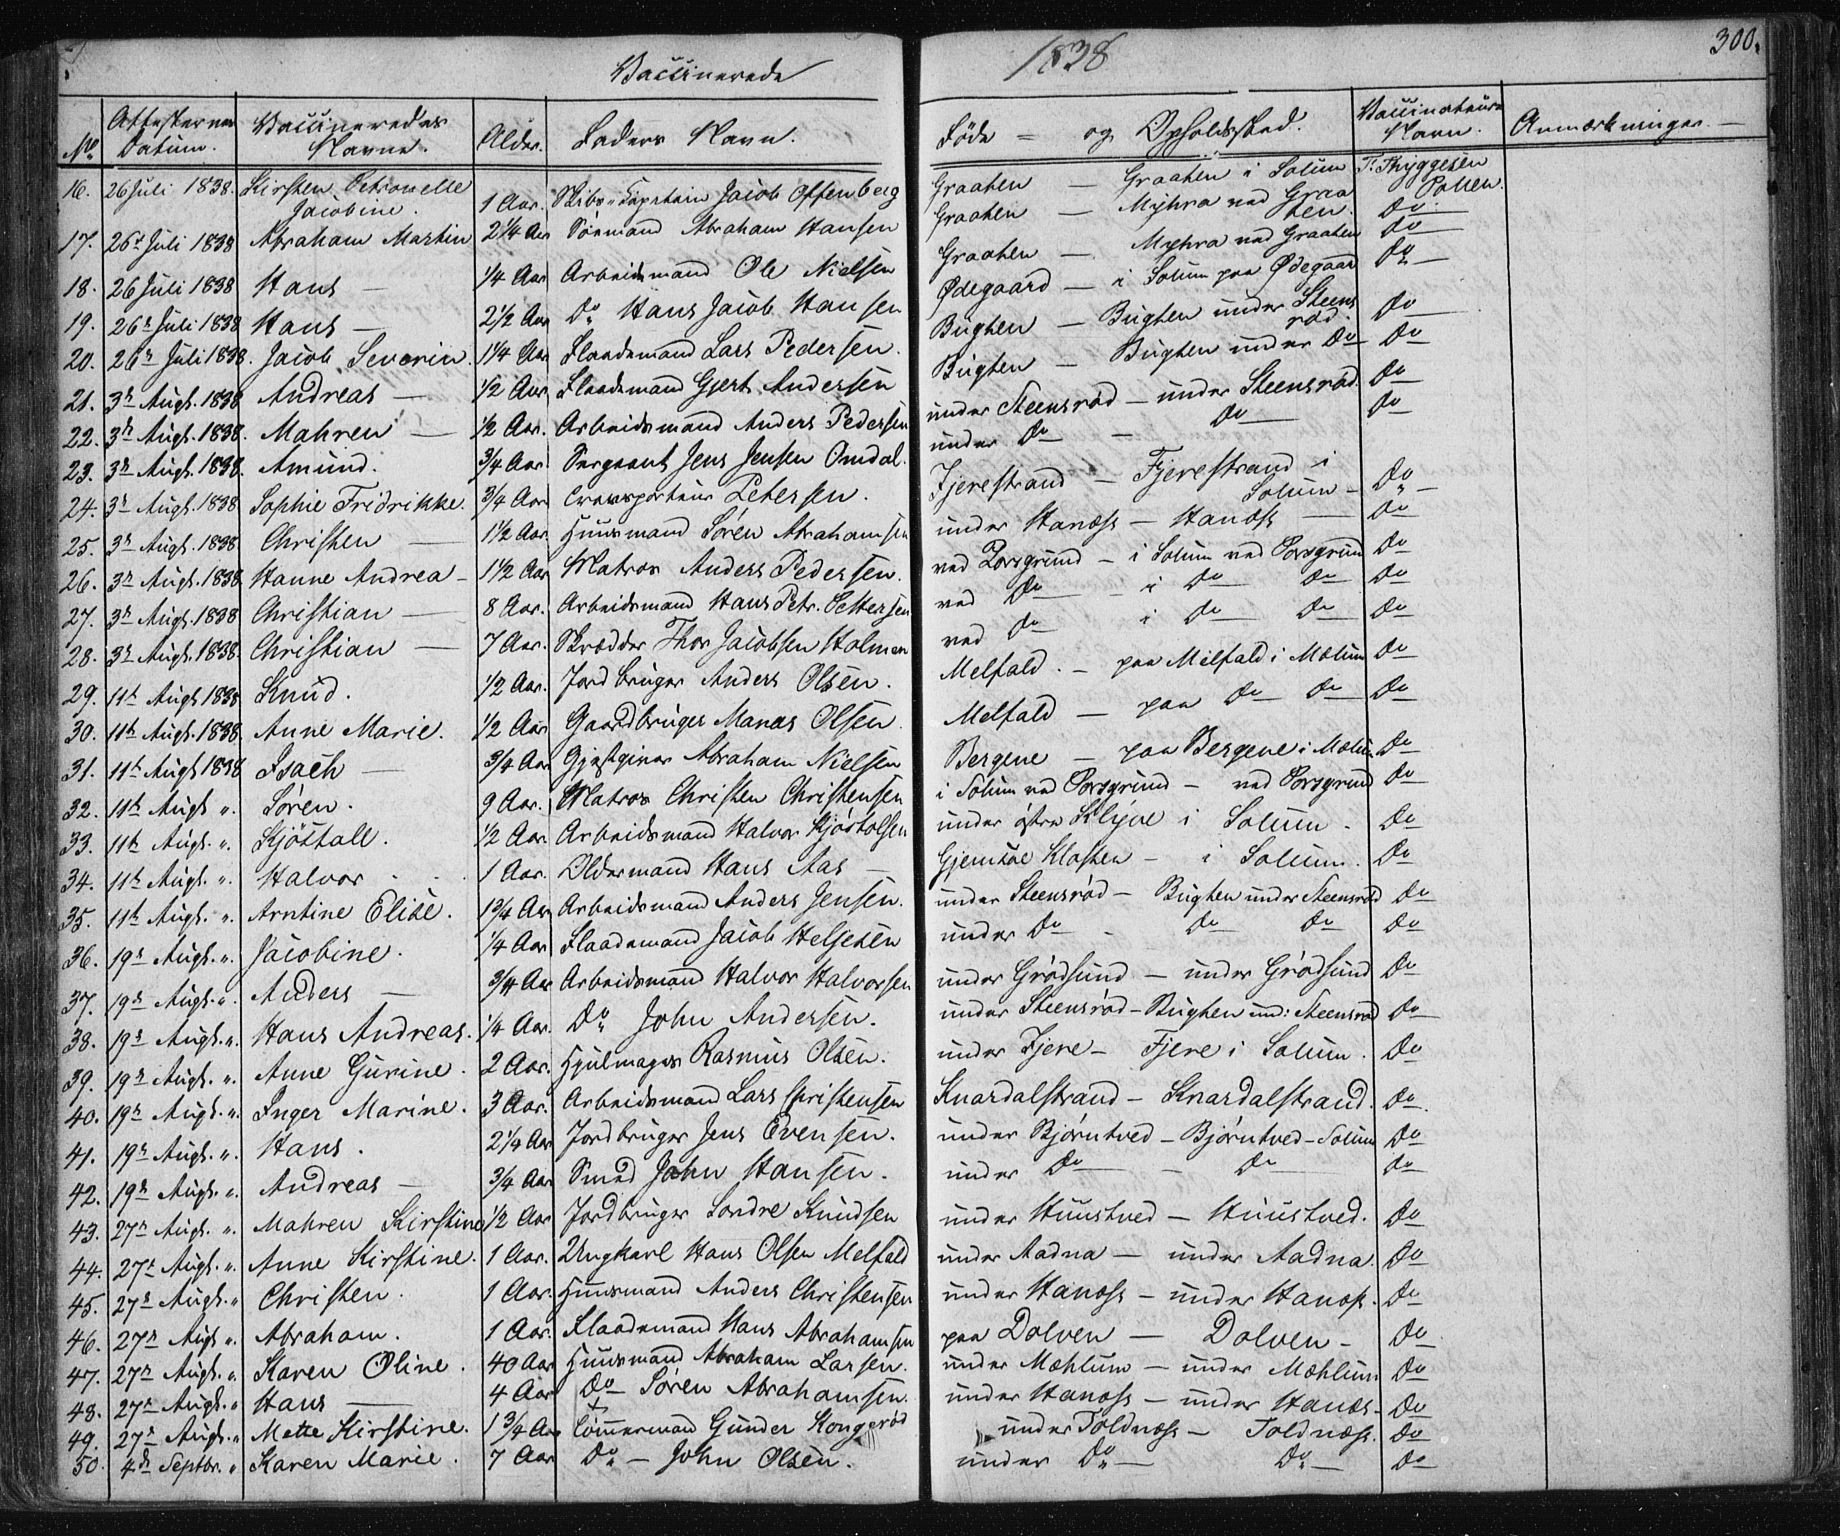 Vaccinerede 1838 300.
No Attesternes Datum. Vaccineredes Navne. Alder. Faders Navn. Føde - og Opholdssted. Vaccinateurs Navn. Anmærkninger.
16. 26 Juli 1838. Kirsten Petronelle Jacobine. 1 Aar. Skibs-Capitain Jacob Offenberg Graaten — Graaten i Solum T. Thyggesen Polsen.
17. 26r Juli 1838 Abraham Martin 2 1/4 Aar Søemand Abraham Hansen Graaten — Myhra ved Graaten. Do
18. 26 Juli 1838 Hans — 1/4 Aar Arbeidsmand Ole Nielsen Graaten — Myhra ved Graaten Do
19. 26r Juli 1838 Hans — 2 1/2 Aar Do Hans Jacob Hansen Ødegaard — i Solum paa Ødegaard Do —
20. 26r Juli 1838. Jacob Severin. 1 1/4 Aar Flaadsmand Lars Pedersen. Bugten — Bugten under Steensrød. Do
21. 3r Augt. 1838 Andreas — 1/2 Aar Flaadsmand Gjert Andersen Bugten — Bugten under Do Do
22. 3r Augt. 1838. Mahren — 1/2 Aar. Arbeidsmand Anders Pedersen under Steensrød — under Steensrød Do
23. 3r Augt. 1838. Amund. 3/4 Aar. Sergeant Jens Jensen Omdal. under Do — Do Do
24. 3r Augt. 1838 Sophie Fridrikke. 3/4 Aar Petersen. Fjerestrand — Fjerestrand i Solum — Do —
25. 3r Augt. 1838 Christen — 1 1/2 Aar. Huusmand Søren Abrahamsen under Hanæss — Hanæss — Do
26. 3r Augt. 1838 Hanne Andrea — 1 1/2 Aar Matros Anders Pedersen. ved Porsgrund — i Solum ved Porsgrun Do
27. 3r Augt. 1838 Christian — 8 Aar. Arbeidsmand Hans Petr. Pettersen ved Do — i Do Do Do
28. 3r Augt. 1838. Christian — 7 Aar. Skrædder Thor Jacobsen Holman ved Do i Do Do Do
29. 11t Augt 1838 Knud. 1/2 Aar. Jordbruger Anders Olsen. Melfald. — paa Melfald i Mælum Do
30. 11t Augt. 1838. Anne Marie. 1/2 Aar Gaardbruger Manas Olsen. Melfald — paa Do Do Do
31. 11t Augt 1838 Isach — 3/4 Aar Gjestgiver Abraham Nielsen Bergene — paa Bergene i Mælum Do
32. 11t Augt ". Søren. 9 Aar. Matros Christen Christensen i Solum ved Porsgrund — ved Porsgrund Do
33. 11t Augt. ". Kjøstoll. 1/2 Aar Arbeidsmand Halvor Kjøstolsen under østre Klyve i Solum. Do
34. 11t Augt. ". Halvor . . 1 Aar. Oldermand Hans Aas — Gjemsøe Kloster — i Solum. Do
35. 11t Augt. ". Arntine Elise. 1 3/4 Aar Arbeidsmand Anders Jensen. under Steensrød — Bugten under Steensrød Do
36. 19r Augt. ". Jacobine. 1/4 Aar Flaadsmand Jacob Helgesen under Do — Do Do Do
37. 19r Augt. ". Anders — 3/4 Aar Arbeidsmand Halvor Halvorsen under Grødsund — under Grødsund Do
38. 19r Augt. ". Hans Andreas. 1/4 Aar. Do John Andersen. under Steensrød — Bugten und: Steensrød Do
39. 19r Augt. ". Anne Gurine. 2 Aar. Hjulmager Rasmus Olsen. under Fjere — Fjere i Solum. Do
40. 19r Augt. ". Inger Marine. 3 Aar. Arbeidsmand Lars Christensen Knardalstrand — Knardalstrand. Do.
41. 19r Augt. ". Hans. 2 1/4 Aar Jordbruger Jens Evensen. under Bjørntved — Bjørntved — Solum Do
42. 19r Augt. ". Andreas — 3/4 Aar Smed John Hansen. under Do — Do Do
43. 27r Augt. ". Mahren Kirstine 1/2 Aar Jordbruger Sondre Knudsen under Huustved — Huustved. Do
44. 27r Augt. ". Anne Kirstine. 1 Aar. Ungkarl Hans Olsen Melfald under Aadna — under Aadna. Do
45. 27r Augt. " Christen. 1 Aar. Huusmand Anders Christensen under Hanæss — under Hanæss. Do
46. 27r Augt ". Abraham. 1 Aar. Flaadsmand Hans Abrahamsen paa Dolven — Dolven — Do
47. 27r Augt. ". Karen Oline. 40 Aar Huusmand Abraham Larsen. under Mæhlum — under Mæhlum Do
48. 27r Augt. " Hans — 4 Aar Do Søren Abrahamsen. under Hanæss — under Hanæs — Do
49. 27r Augt. " Mette Kirstine. 1 3/4 Aar Tømmermand Gunder Kongerød under Toldnæss — Toldnæss. Do
50. 4de Septbr. " Karen Marie. 7 Aar Do — John Olsen. under Do — Do — Do